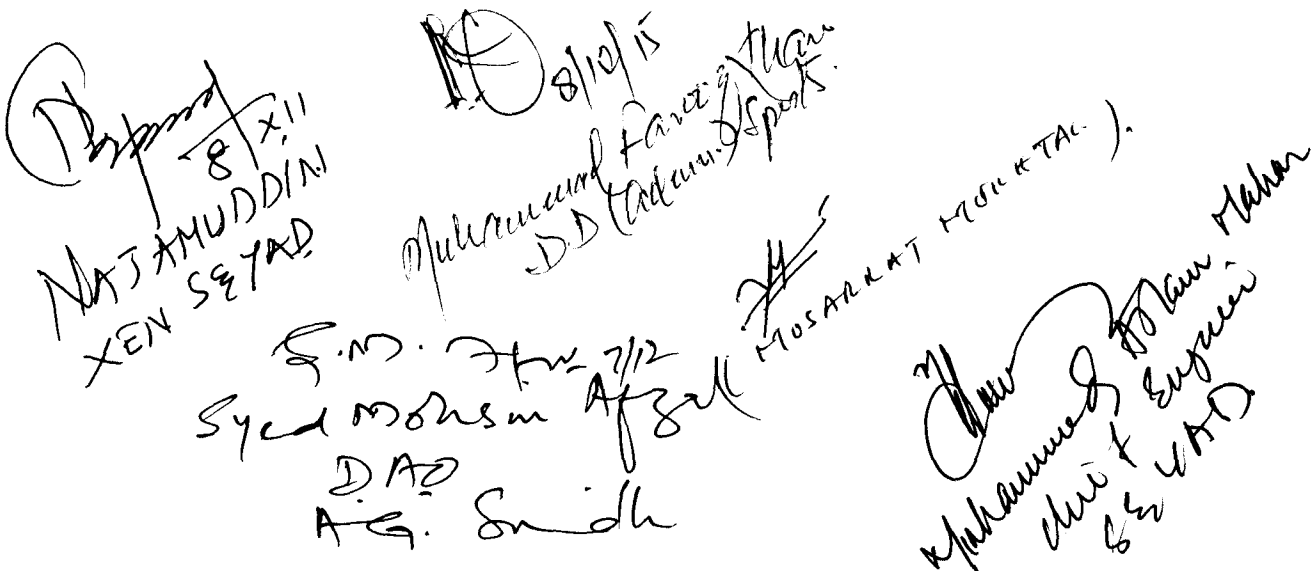 8/XII
NAJAMUDDIN
XEN SEYAD
8/10/15
Muhammad Farooq Khan
DD (Admn.) Sports.
MUSARRAT MUKHTAR ).
7/12
Syed Mohsin Afzall
DAO
A.G. Sindh
Muhammed Aslam Mahar
Chief Engineer
SEYAD.